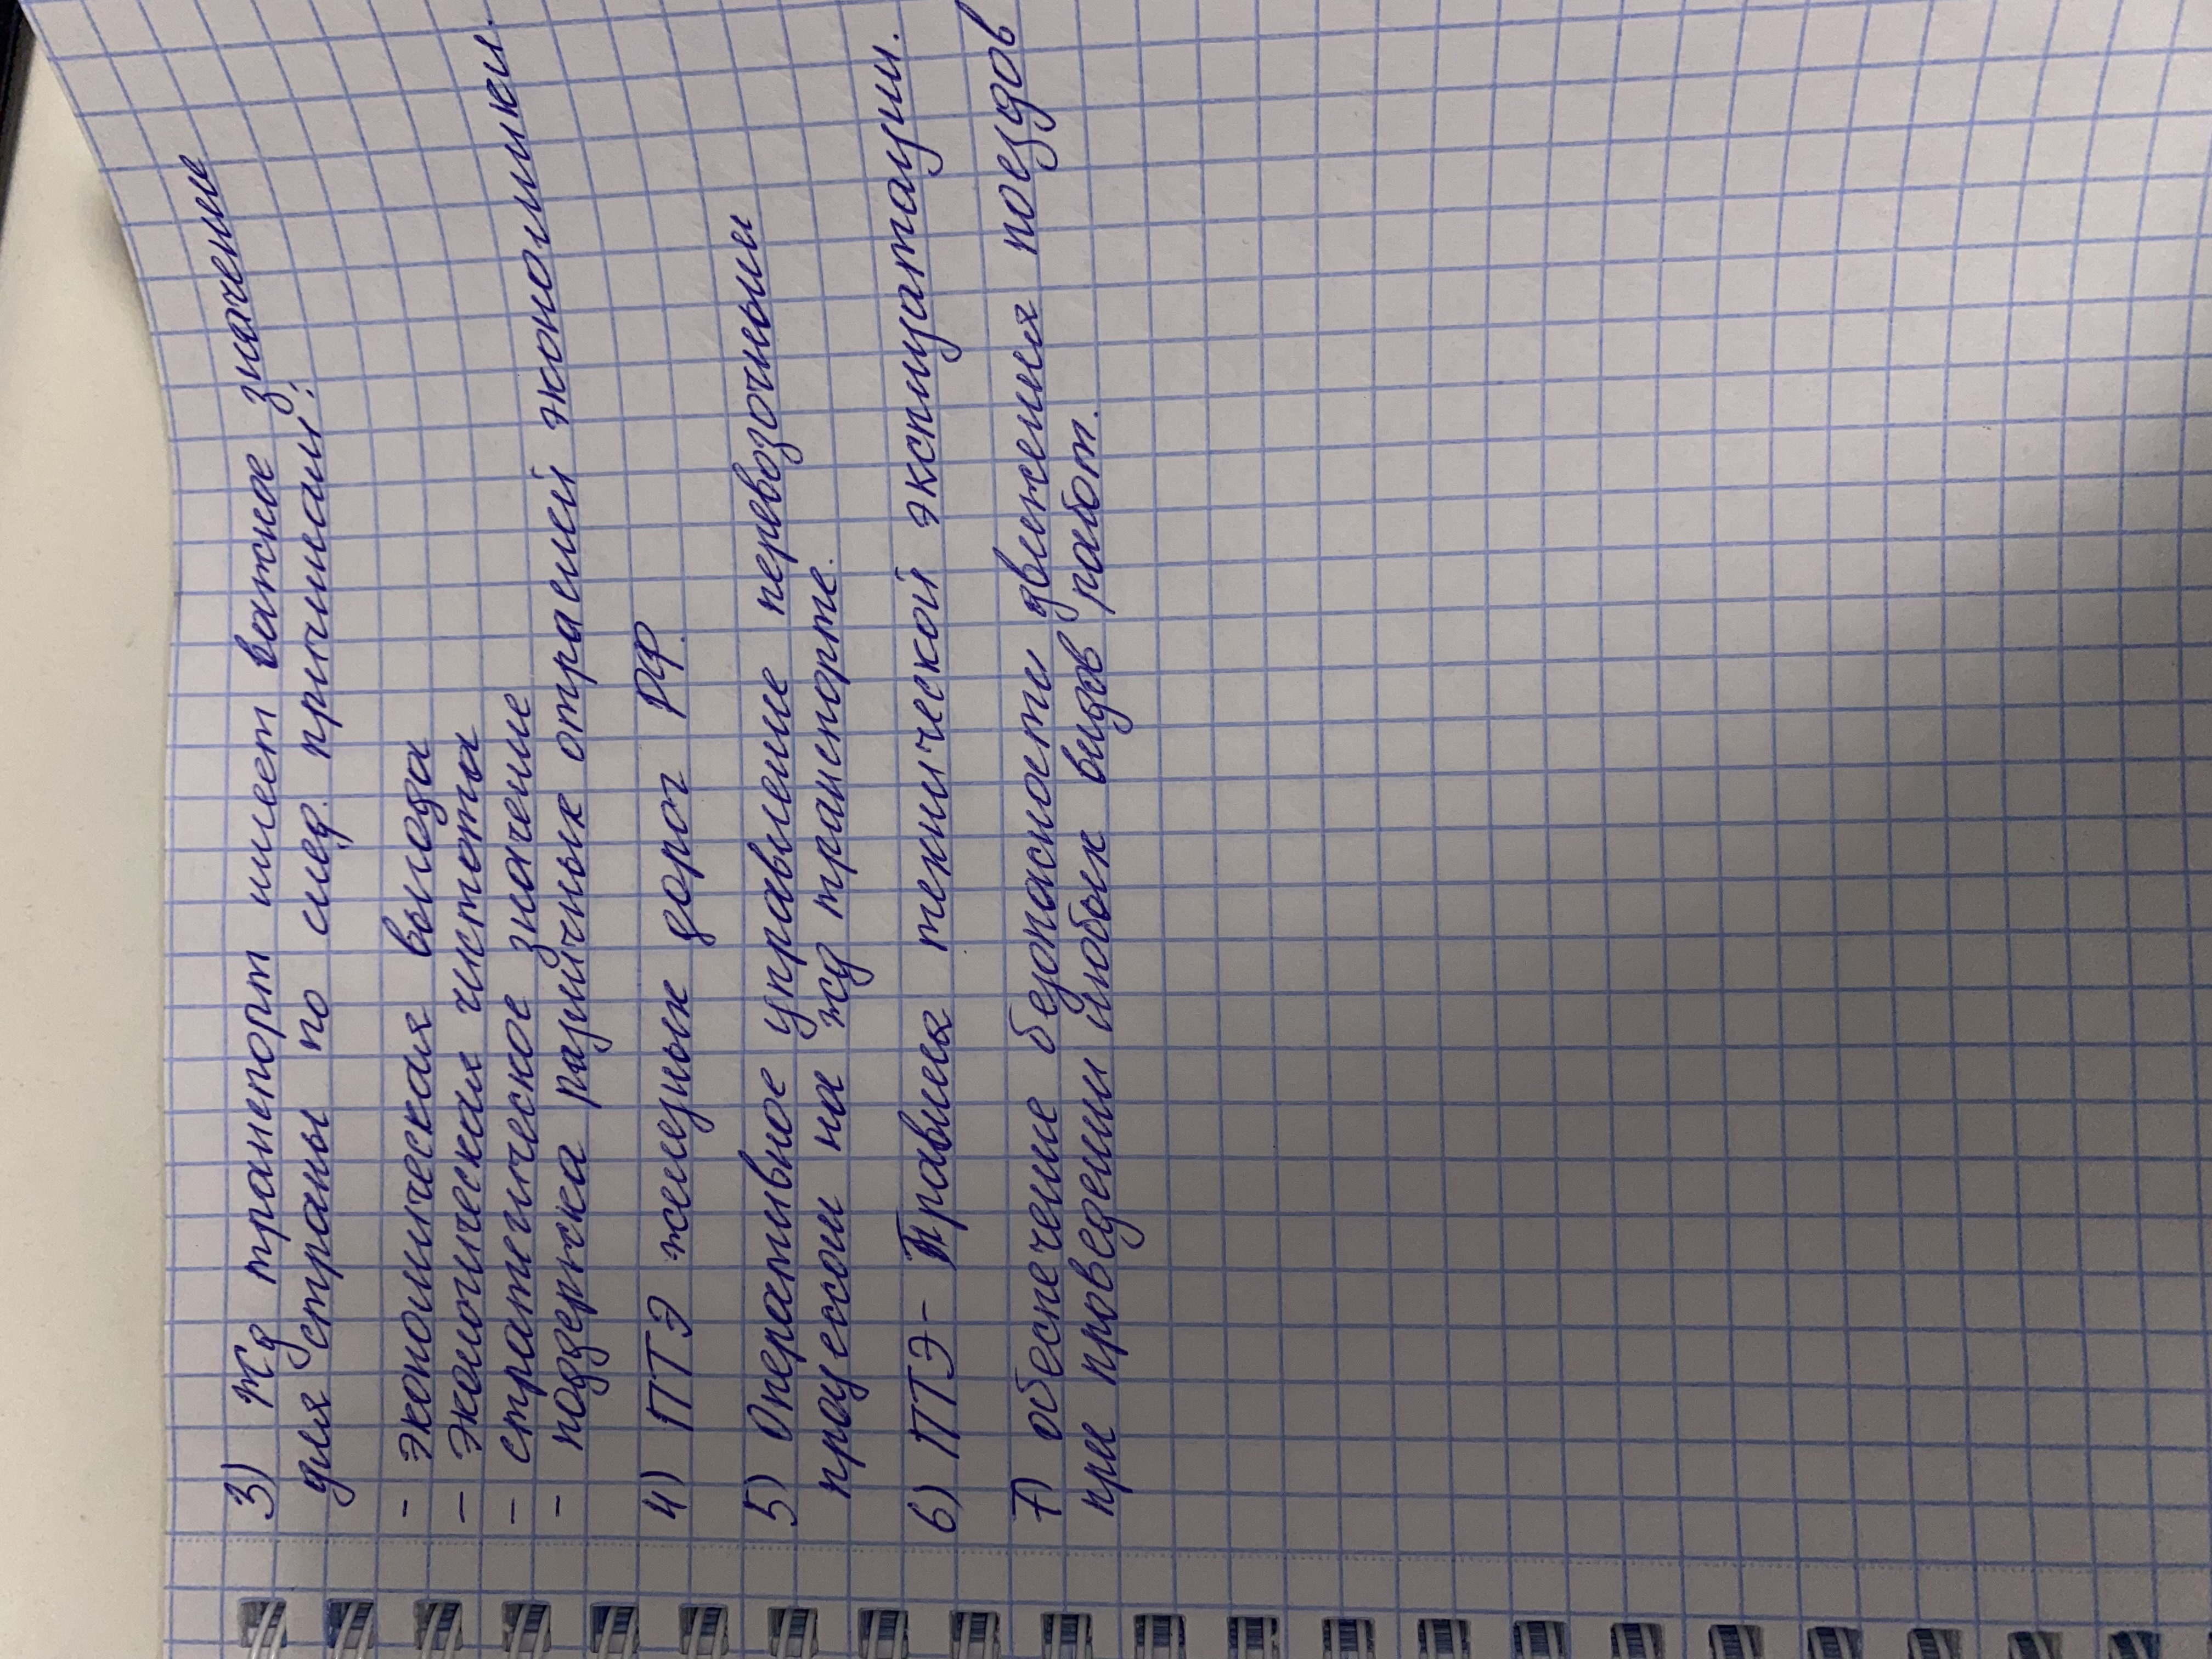 3) Жд транспорт имеет важное значение
для страны по след. причинам:
- экономическая выгода
- экологическая чистота
- стратегическое значение
- поддержка различных отраслей экономики.
4) ПТЭ железных дорог РФ.
5) Оперативное управление перевозочными
процессом на жд транспорте.
6) ПТЭ - Правила технической эксплуатации.
7) обеспечение безопасности движения поездов
при проведении любых видов работ.